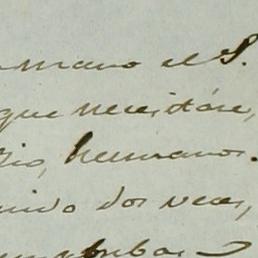 mano el S.
que necesitáre,
Dio, hermanos.
nido dos veces,